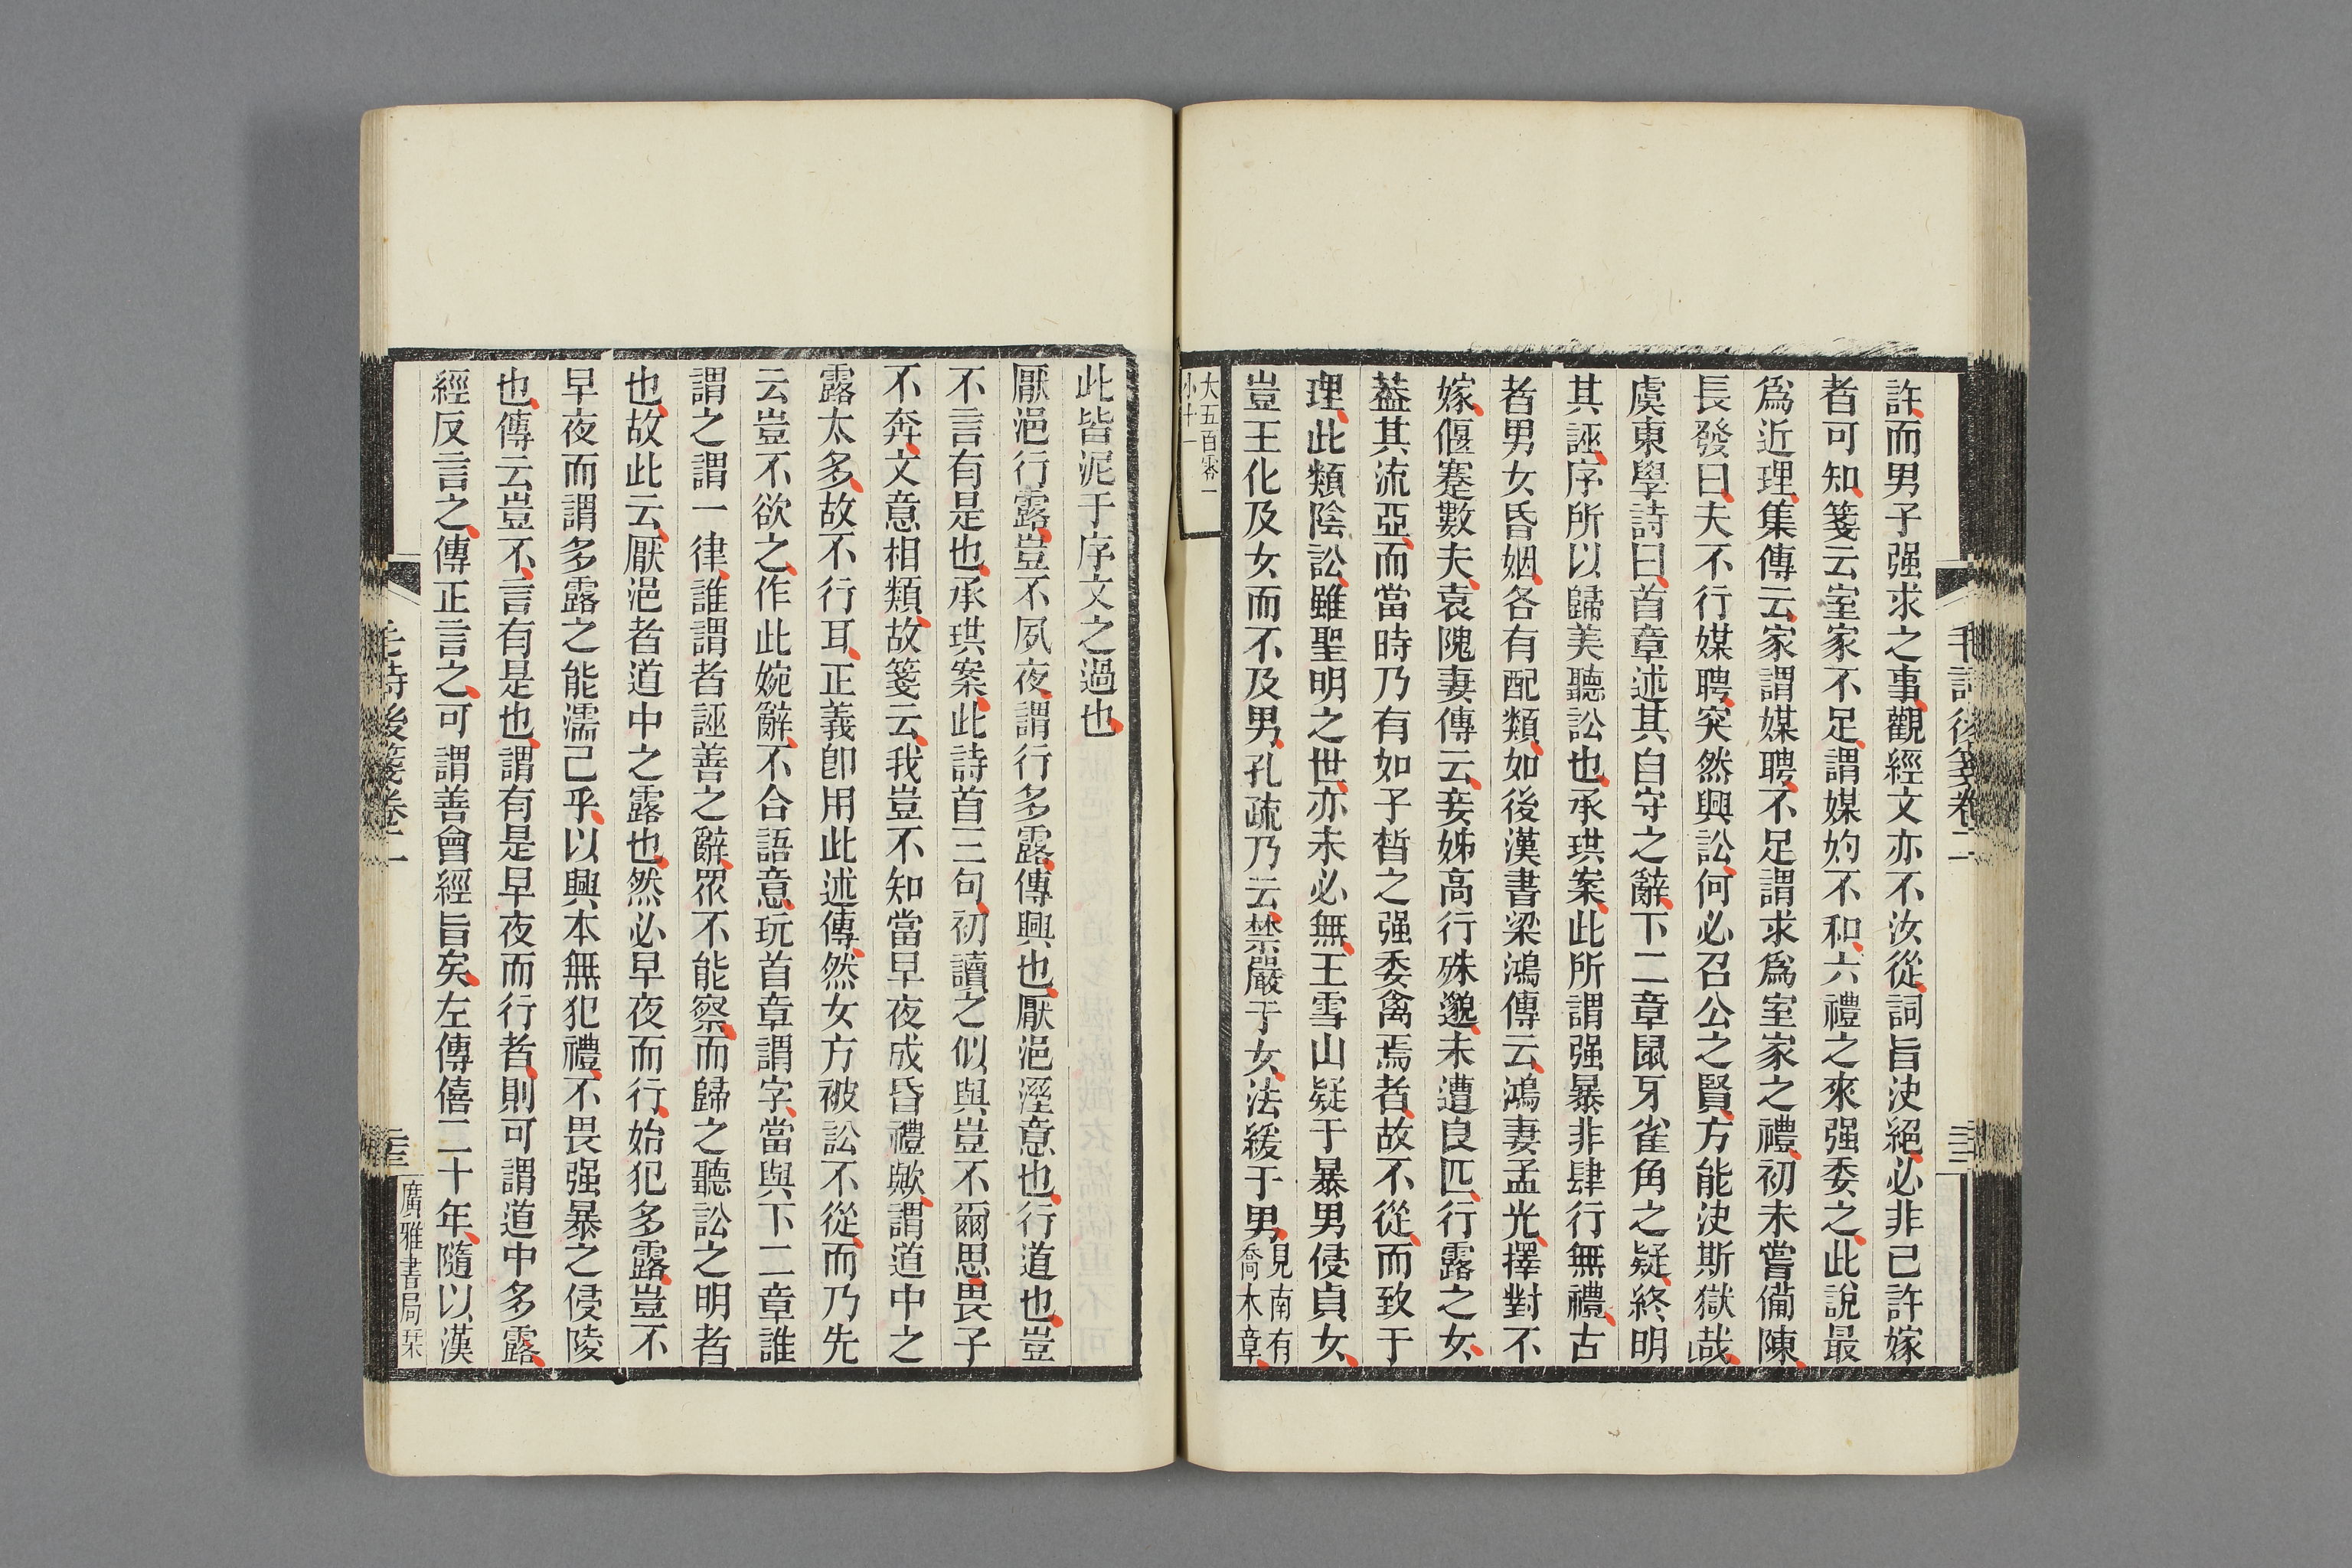 許而男子强求之事觀經文亦不汝從詞旨決絕必非己許嫁
者可知箋云室家不足謂媒妁不和六禮之來强委之此說最
爲近理集傳云家謂媒聘不足謂求爲室家之禮初未嘗備陳
長發曰夫不行媒聘突然興訟何必召公之賢方能決斯獄哉
虞東學詩曰首章述其自守之辭下二章鼠牙雀角之疑終明
其誣序所以歸美聽訟也承珙案此所謂强暴非肆行無禮古
者男女昏姻各有配類如後漢書梁鴻傳云鴻妻孟光擇對不
嫁偃蹇數夫袁隗妻傳云妾姊高行殊邈未遭良匹行露之女
葢其流亞而當時乃有如子晳之强委禽焉者故不從而致于
理此類陰訟雖聖明之世亦未必無王雪山疑于暴男侵貞女
豈王化及女而不及男孔疏乃云禁嚴于女法緩于男見南有喬木章
大五百零一
小十一
毛詩後箋卷二
此皆泥于序文之過也
厭浥行露豈不夙夜謂行多露傳興也厭浥溼意也行道也豈
不言有是也承珙案此詩首三句初讀之似與豈不爾思畏子
不奔文意相類故箋云我豈不知當早夜成昏禮歟謂道中之
露太多故不行耳正義卽用此述傳然女方被訟不從而乃先
云豈不欲之作此婉辭不合語意玩首章謂字當與下二章誰
謂之謂一律誰謂者誣善之辭眾不能察而歸之聽訟之明者
也故此云厭浥者道中之露也然必早夜而行始犯多露豈不
早夜而謂多露之能濡己乎以興本無犯禮不畏强暴之侵陵
也傳云豈不言有是也謂有是早夜而行者則可謂道中多露
經反言之傳正言之可謂善會經旨矣左傳僖二十年隨以漢
毛詩後箋卷二
廣雅書局栞